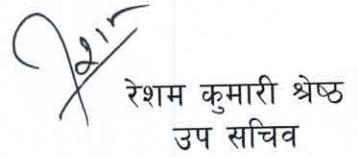 रेशम कुमारी श्रेष्ठ
उप सचिव